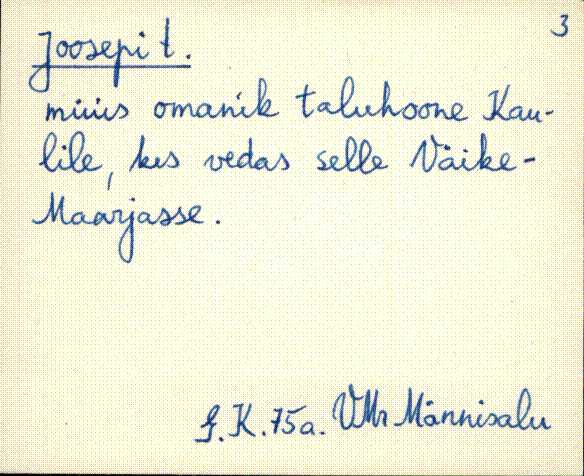 3
Joosepi t.
müüs omanik taluhoone Kau-
lile, kes vedas selle Väike-
Maarjasse.
K. 75a. VMr Männisalu